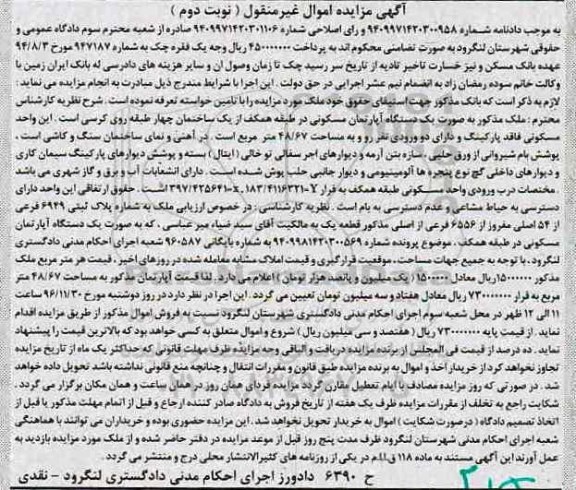 آگهی مزایده اموال غیرمنقول ( نوبت دوم )
به موجب دادنامه شماره ۹۴۰۹۹۷۱۴۲۰۳۰۰۹۵۸ و رای اصلاحی شماره ۹۴۰۹۹۷۱۴۲۰۳۰۱۱۰۶ صادره از شعبه محترم سوم دادگاه عمومی و
حقوقی شهرستان لنگرود به صورت تضامنی محکوم اند به پرداخت ۴۵۰۰۰۰۰۰۰ ریال وجه یک فقره چک به شماره ۹۴۷۱۸۷ مورخ ۹۴/۸/۳
عهده بانک مسکن و نیز خسارت تاخیر تادیه از تاریخ سر رسید چک تا زمان وصول ان و سایر هزینه های دادرسی له بانک ایران زمین با
وکالت خانم سوده رمضان زاد به انضمام نیم عشر اجرایی در حق دولت . این اجرا با شرایط مندرج ذیل مبادرت به انجام مزایده می نماید :
لازم به ذکر است که بانک مذکور جهت استیفای حقوق خود ملک مورد مزایده را با تامین خواسته تعرفه نموده است . شرح نظریه کارشناس
محترم : ملک مذکور به صورت یک دستگاه آپارتمان مسکونی در طبقه همکف از یک ساختمان چهار طبقه روی کرسی است . این واحد
مسکونی فاقد پارکینگ و دارای دو ورودی نفر رو و به مساحت ۴۸/۶۷ متر مربع است . در آهنی و نمای ساختمان سنگ و کاشی است .
پوشش بام شیروانی از ورق حلبی ، سازه بتن آرمه و دیوارهای اجر سفالی تو خالی ( ایتال ) بسته و پوشش دیوارهای پارکینگ سیمان کاری
و دیوارهای داخلی گچ نوع پنجره ها آلومینیومی و دیوار جانبی حلب پوش شده است . دارای انشعابات آب و برق و گاز شهری می باشد
. مختصات درب ورودی واحد مسکونی طبقه همکف به قرار x، ۱۸۳/۴۱۱۶۳۲۱-Y ۳۹۷/۴۲۵۶۴۱- است . حقوق ارتفاقی این واحد دارای
دسترسی به حیاط مشاعی و عدم دسترسی به بام است . نظریه کارشناسی : در خصوص ارزیابی ملک به شماره پلاک ثبتی ۶۹۴۹ فرعی
از ۵۴ اصلی مفروز از ۶۵۵۶ فرعی از اصلی مذکور قطعه یک به مالکیت آقای سید ضیاء میر عباسی ، که به صورت یک دستگاه آپارتمان
مسکونی در طبقه همکف . موضوع پرونده شماره ۹۴۰۹۹۸۱۴۲۰۳۰۰۵۶۹ به شماره بایگانی ۹۶۰۵۸۷ شعبه اجرای احکام مدنی دادگستری
لنگرود . با توجه به جمیع جهات مساحت ، موقعیت قرارگیری و قیمت املاک مشابه معامله شده در روزهای اخیر ، قیمت هر متر مربع ملک
مذکور ۱۵۰۰۰۰۰۰ ریال معادل ۱۵۰۰۰۰۰ ( یک میلیون و پانصد هزار تومان ) اعلام می دارد . لذا قیمت آپارتمان مذکور به مساحت ۴۸/۶۷ متر
مربع به قرار ۷۳۰۰۰۰۰۰۰ ریال معادل هفتاد و سه میلیون تومان تعیین می گردد . این اجرا در نظر دارد در روز دوشنبه مورخ ۹۶/۱۱/۳۰ ساعت
۱۱ الی ۱۲ ظهر در محل شعبه سوم اجرای احکام مدنی دادگستری شهرستان لنگرود نسبت به فروش اموال مذکور از طریق مزایده اقدام
نماید . از قیمت پایه ۷۳۰۰۰۰۰۰۰ ریال ( هفتصد و سی میلیون ریال ) شروع و اموال متعلق به کسی خواهد بود که بالاترین قیمت را پیشنهاد
نماید . ده درصد از قیمت فی المجلس از برنده مزایده دریافت و الباقی وجه مزایده ظرف مهلت قانونی که حداکثر یک ماه از تاریخ مزایده
تجاوز نخواهد کرد از خریدار اخذ و اموال به برنده مزایده طبق قانون و مقررات انتقال و چنانچه منع قانونی نداشته باشد تحویل داده خواهد
شد . در صورتی که روز مزایده مصادف با ایام تعطیل مقارن گردد مزایده فردای همان روز در همان ساعت و همان مکان برگزار می گردد .
شکایت راجع به تخلف از مقررات مزایده ظرف یک هفته از تاریخ فروش به دادگاه صادر کننده ارجاع و قبل از اتمام مهلت مذکور یا قبل از
اتخاذ تصمیم دادگاه ( درصورت شکایت ) اموال به خریدار تحویل نخواهد شد . این مزایده حضوری بوده و خریداران می توانند با هماهنگی
شعبه اجرای احکام مدنی شهرستان لنگرود ظرف مدت پنج روز قبل از موعد مزایده در دفتر حاضر شده و از ملک مورد مزایده بازدید به
عمل آورند این آگهی مستند به ماده ۱۱۸ ق.ا.ا.م در یکی از روزنامه های کثیرالانتشار محلی درج و منتشر می گردد .
ح ۶۳۹۰ دادورز اجرای احکام مدنی دادگستری لنگرود - نقدی